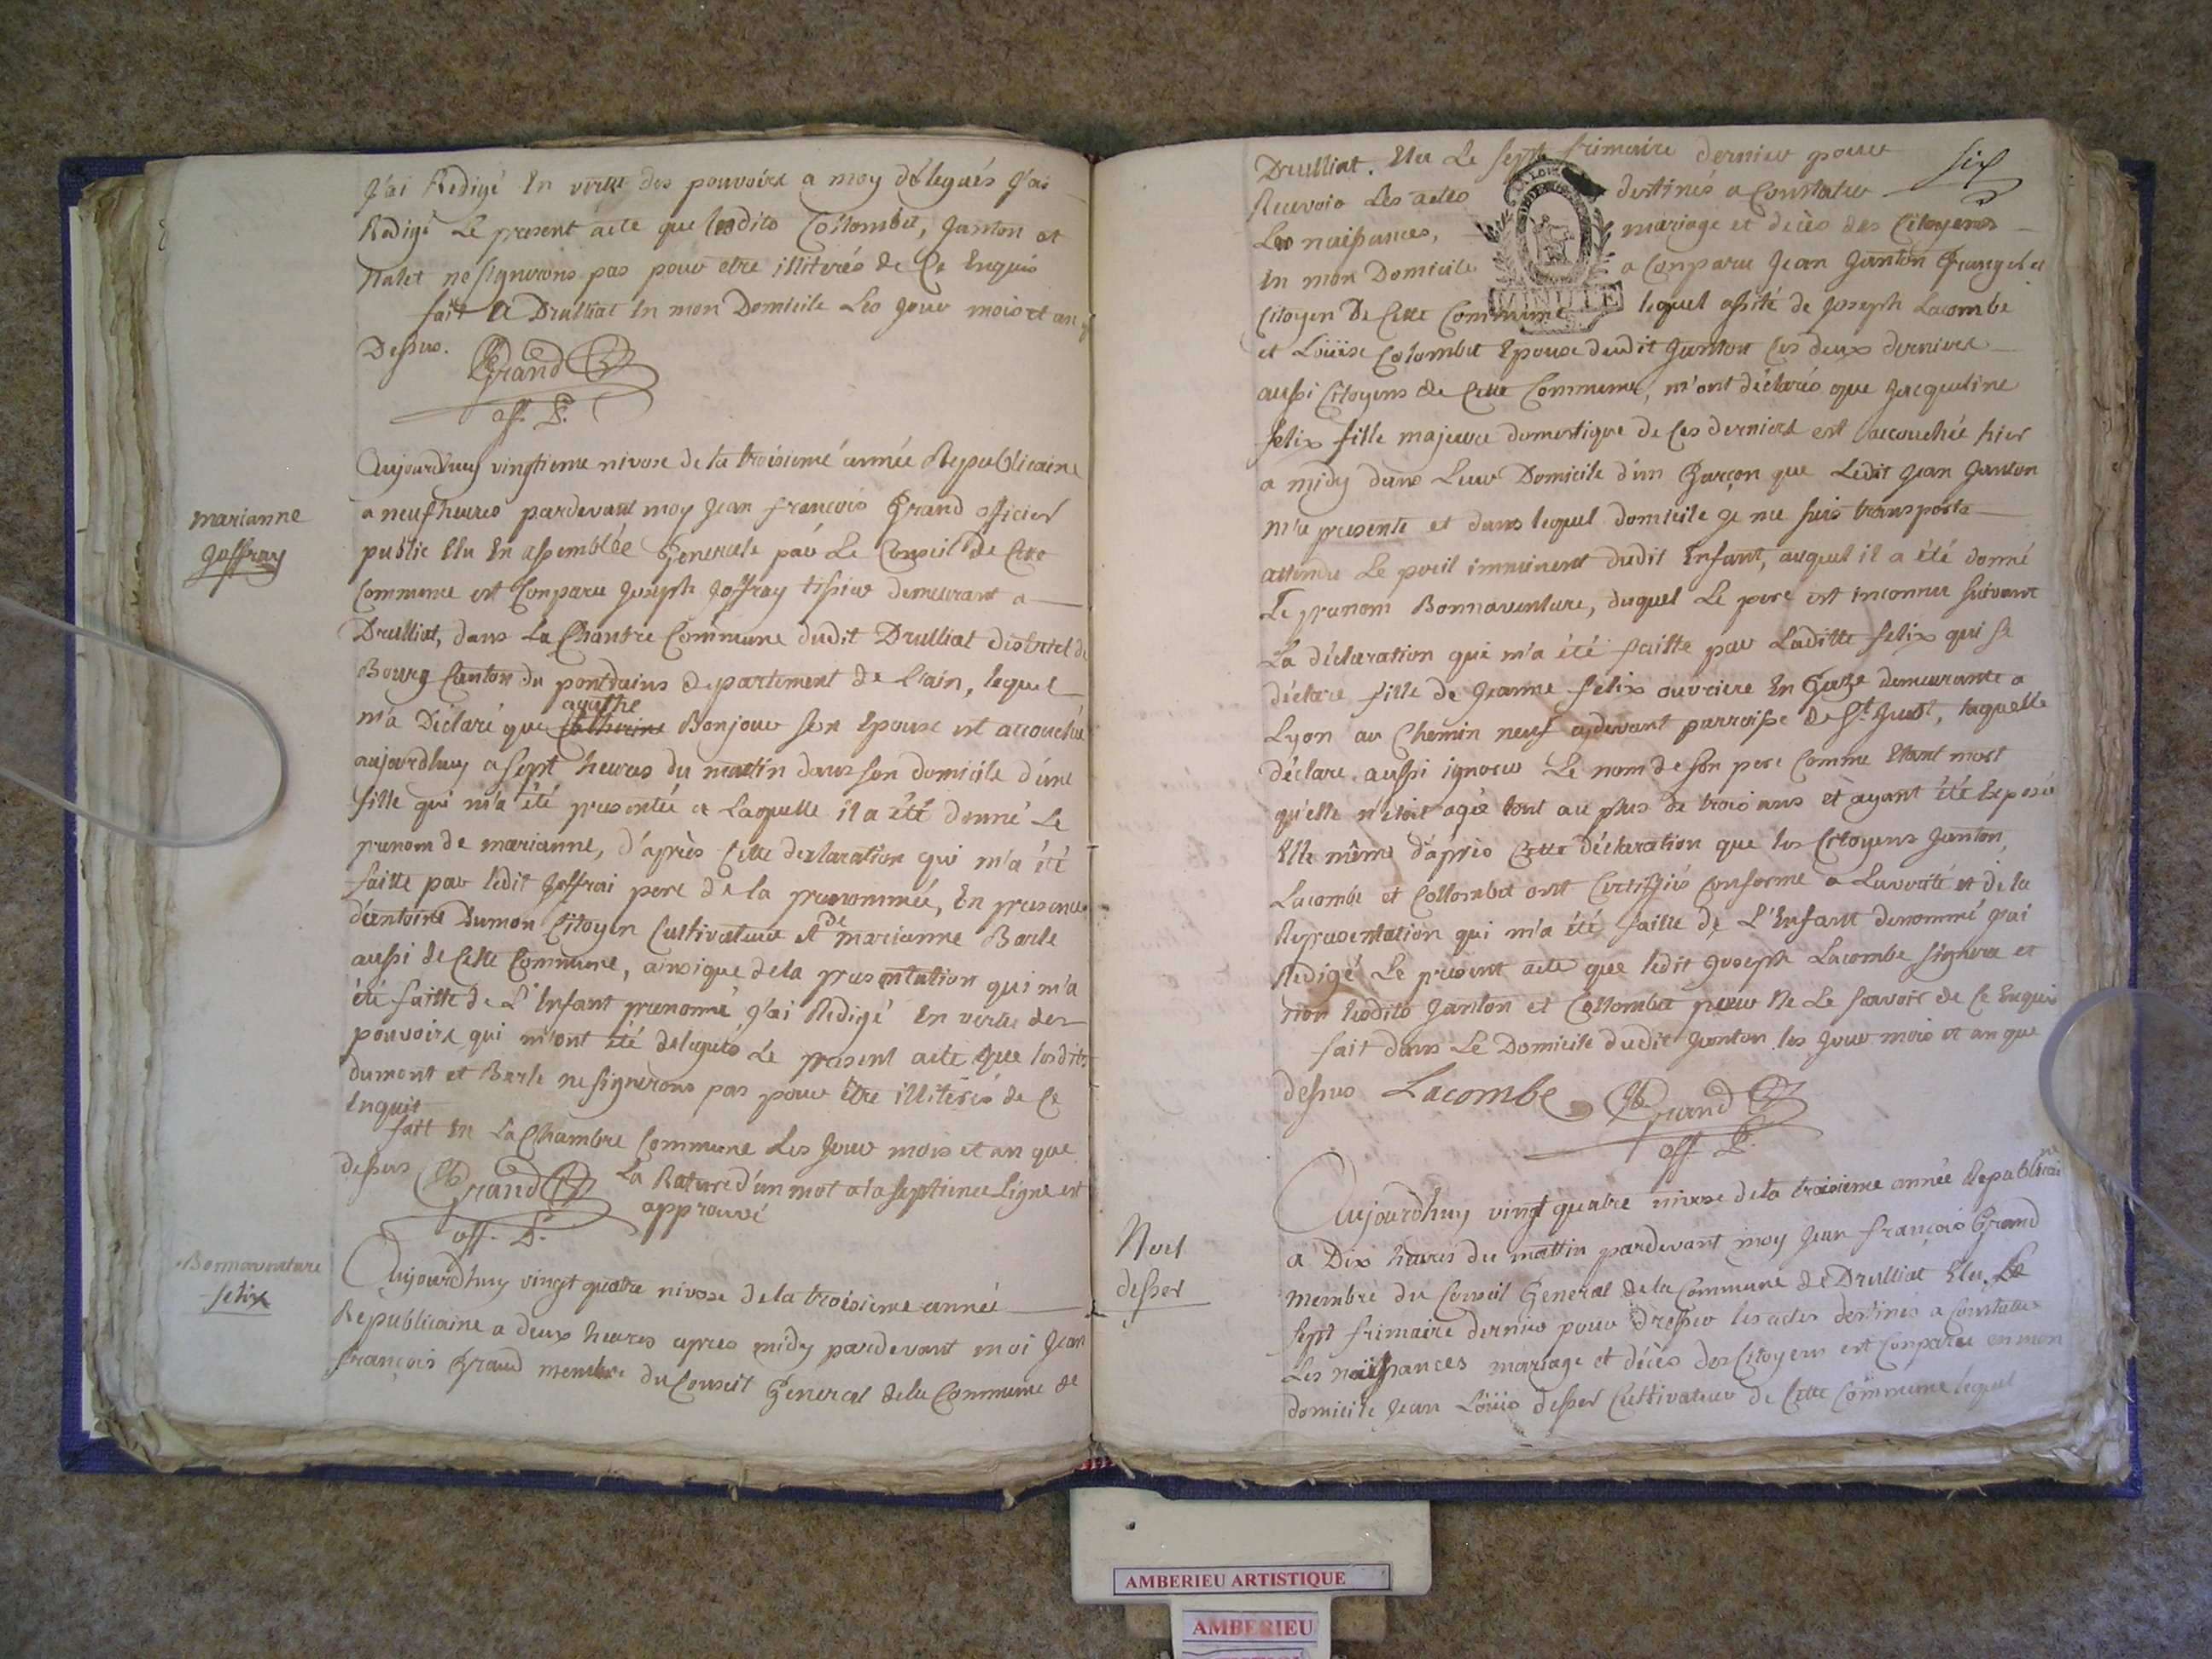 J'ai Redigé En vertu des pouvoirs a moy délegués J'ai
Redigé Le present acte que lesdits Collombet, Janton et
ne signerons pas pour etre illiterés de Ce Enquis
fait A Drulliat En mon Domicile Les Jour mois et an q
Dessus. Grand
off. P.
marianne
Joffray
Aujourdhuy vingtieme nivose de la troisieme année Republicaine
a neuf heures pardevant moy Jean françois Grand officier
public Elu En assemblée Generale par Le Conseil de Cette
Commune est Comparu Joseph Joffray tissier demeurant a
Drulliat, dans La Chambre Commune dudit Drulliat district de
Bourg Canton du pontdains departement de L'ain, lequel
agathe
m'a Déclaré que Catherine Bonjour son Epouse est accouchée
aujourdhuy a sept heures du mattin dans son domicile d'une
fille qui m'a été presentée et Laquelle il a été donné Le
prenom de marianne, d'après Cette declaration qui m'a été
faitte par ledit Joffrai pere de la prenommée, En presence
d'antoine Dumon Citoyen Cultivateur et de marianne Barle
aussi de Cette Commune, ainsique dela presentation qui m'a
été faitte de L'Enfant prenommé J'ai Redigé En vertu des
pouvoirs qui m'ont été delegués Le present acte que lesdits
dumont et Barle ne signerons pas pour être illiterés de Ce
Enquis
fait En La Chambre Commune Les Jour mois et an que
dessus Grand La Rature d'un mot a la septieme Ligne est
approuvé
off. P.
Bonnaventure
felix
Aujourdhuy vingt quatre nivose dela troisieme année
Republicaine a deux heures apres midy pardevant moi Jean
françois Grand membre du Conseil General dela Commune de
six
Drulliat. Elu Le sept frimaire dernier pour
Recevoir Les actes destinés a Constater
Les naissances, mariage et décès des Citoyens
En mon Domicile a Comparu Jean Janton
LA LOI
MINUTE
Citoyen De Cette Commune lequel assité de Joseph Lacombe
et Loüise Colombet Epouse dudit Janton Ces deux derniers
aussi Citoyens de Cette Commune, m'ont déclarés que Jacqueline
felix fille majeure domestique de Ces derniers est accouchée hier
a midy dans Leur Domicile d'un Garçon que Ledit Jean Janton
m'a presenté et dans lequel domicile Je me suis transporté
attendu Le peril imminent dudit Enfant, auquel il a été donné
Le prenom Bonnaventure, duquel Le pere est inconnu suivant
La déclaration qui m'a été faitte par Laditte felix qui se
déclare fille de Jeanne felix ouvriere En Gaze demeurante a
Lyon au Chemin neuf cydevant parroisse de St Just, laquelle
déclare aussi ignorer Le nom de son pere Comme Etant mort
qu'elle n'étoit agée tout au plus de trois ans et ayant été Exposée
Elle même d'après Cette déclaration que les Citoyens Janton,
Lacombe et Collombet ont Certifiés Conforme a La verité et de la
Representation qui m'a été faitte de L'Enfant denommé J'ai
Redigé Le present acte que ledit Joseph Lacombe signera et
non lesdits Janton et Collombet pour Ne Le savoir de Ce Enquis
fait dans Le Domicile dudit Janton les Jour mois et an que
dessus Lacombe Grand
off. P.
Noel
desser
Aujourdhuy vingt quatre nivose dela troisieme année Republicaine
a Dix heures du mattin pardevant moy Jean françois Grand
membre du Conseil General dela Commune de Drulliat Elu Le
sept frimaire dernier pour dresser les actes destinés a Constater
Les naissances mariage et décès des Citoyens est Comparu en mon
domicile Jean Loüis desser Cultivateur de Cette Commune lequel
AMBERIEU ARTISTIQUE
AMBERIEU